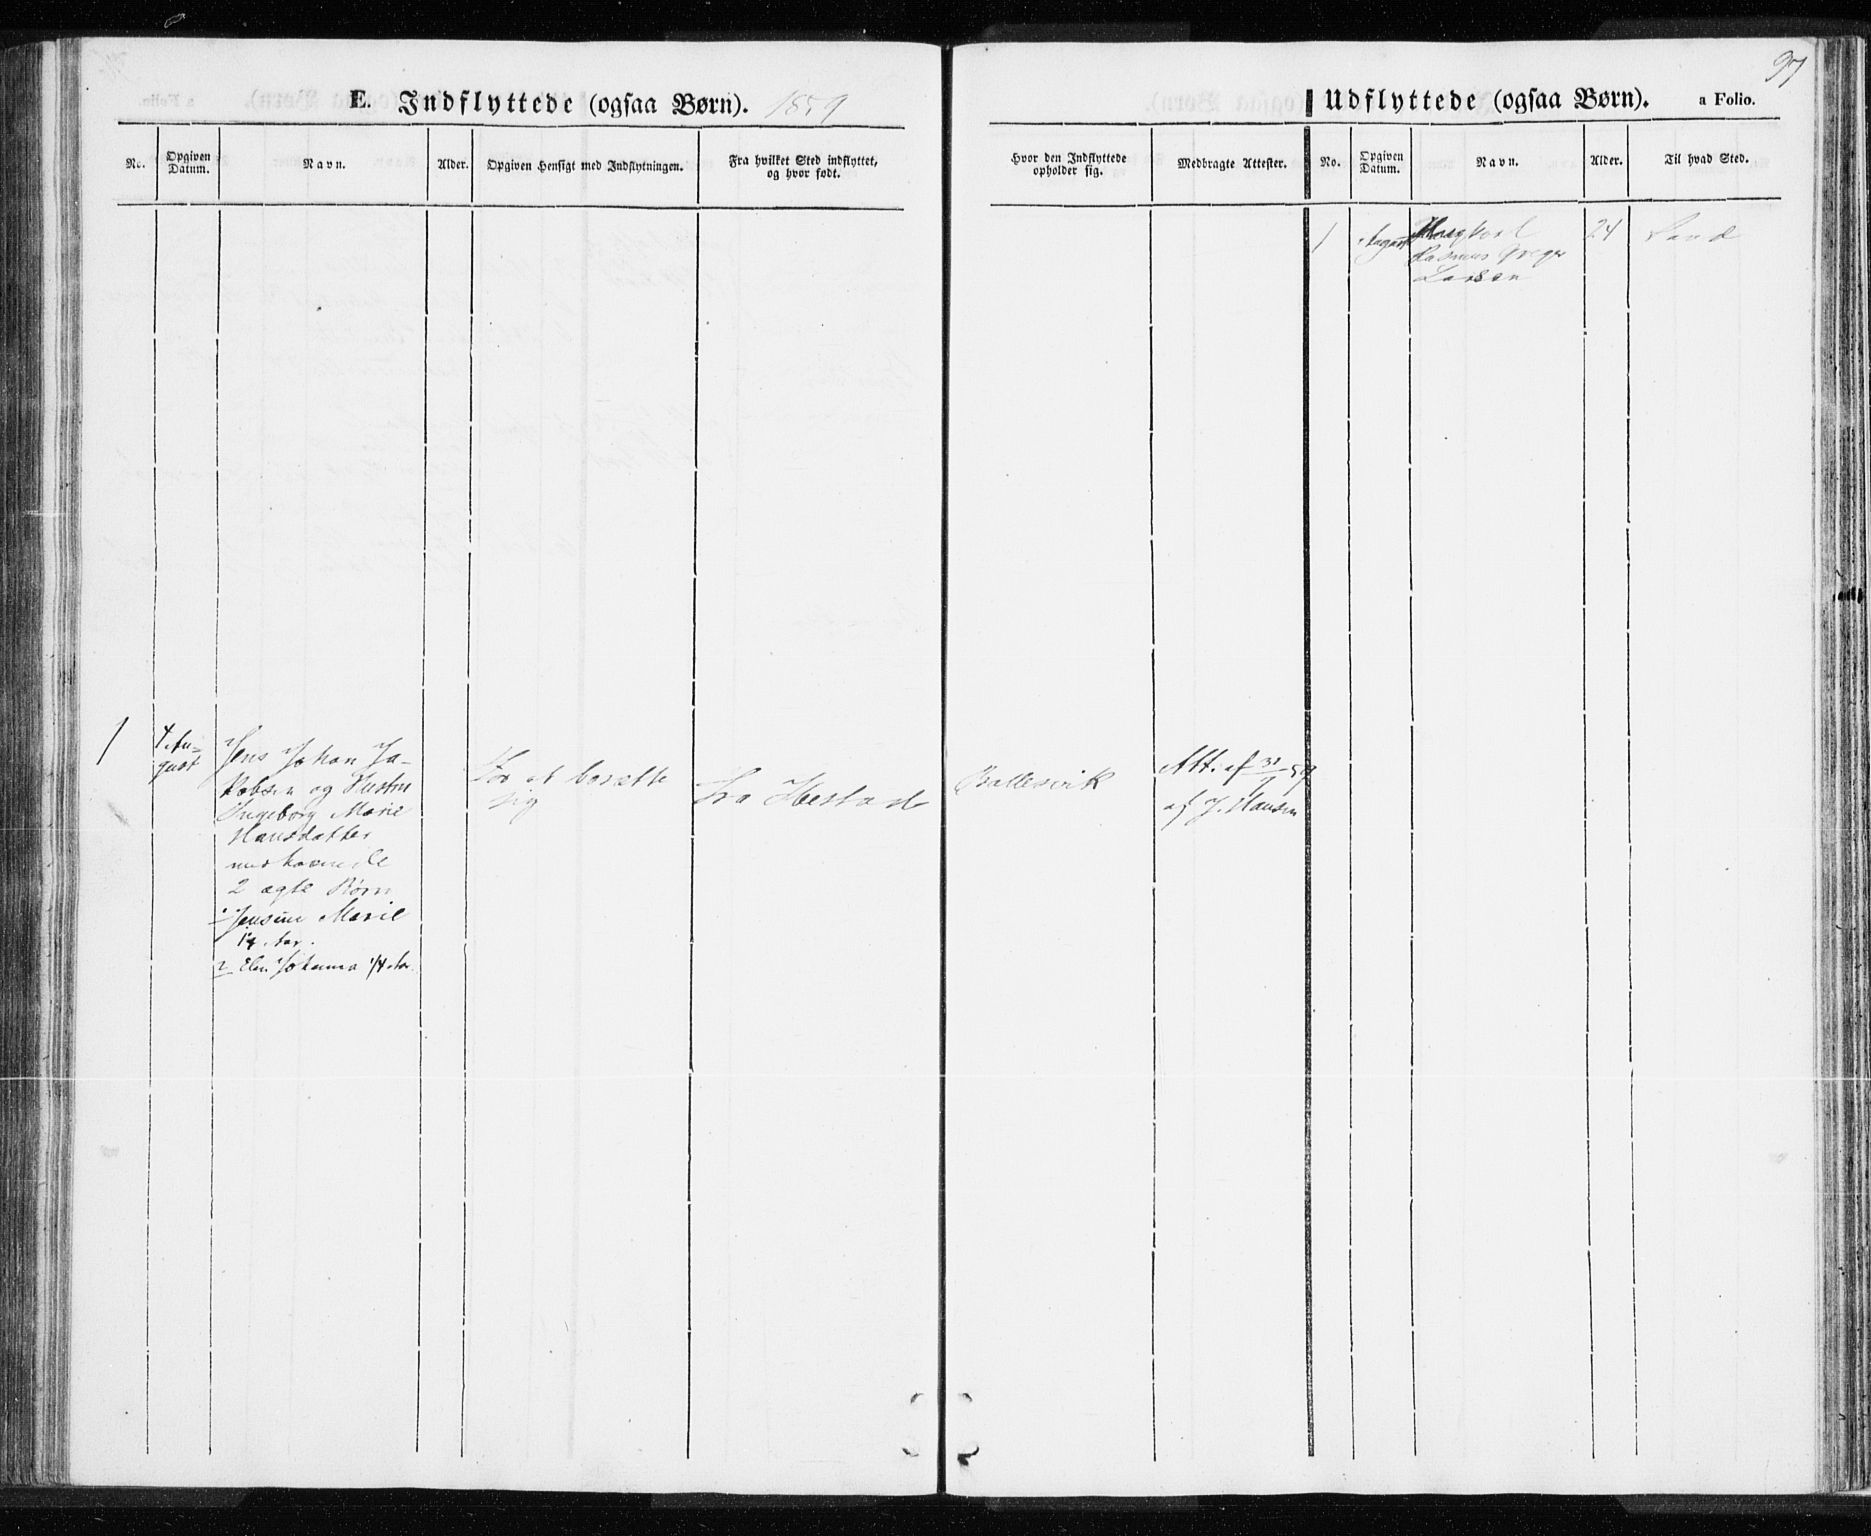 97
E. Indflyttede (ogsaa Børn). 1859
No.
Opgiven
Datum.
Navn.
Alder.
Opgiven Hensigt med Indflytningen.
Fra hvilket Sted indflyttet,
og hvor født.
1
4 Au-
gust
Jens Johan Ja-
kobsen og Hustru
Ingeborg Marie
Hansdatter
medhavende
2 ægte Børn
1 Jensine Marie
Aar.
2 Elen Johanna 1/4 Aar
For at bosætte
sig
fra Ibestad
Udflyttede (ogsaa Børn). a Folio.
Hvor den Indflyttede
opholder sig.
Medbragte Attester.
No.
Opgiven
Datum.
Navn.
Alder.
Til hvad Sted.
Ballesvik
Att. af 31/7 59
af J. Hansen
1
August
Rasmus Greger
Larsen
24
Sand